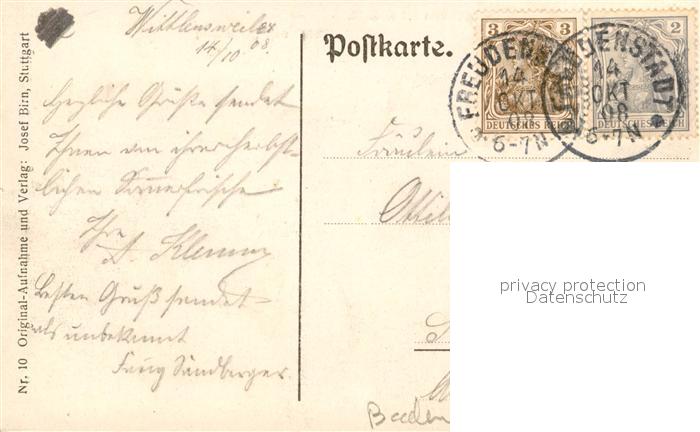 Wittlensweiler
14/10 08.
Herzliche Grüße sendet
Ihnen von ihrer herbst-
lichen Sommerfrische
Ihre
A. Klemm
Besten Gruß sendet
als unbekannt
Sandberger.
Nr. 10 Original-Aufnahme und Verlag: Josef Birn, Stuttgart
Postkarte.
3 3
DEUTSCHES REICH
2
DEUTSCHES REICH
FREUDENSTADT
14
OKT
08
6-7N
FREUDENSTADT
14
OKT
08
6-7N
Fräulein
Baden
privacy protection
Datenschutz